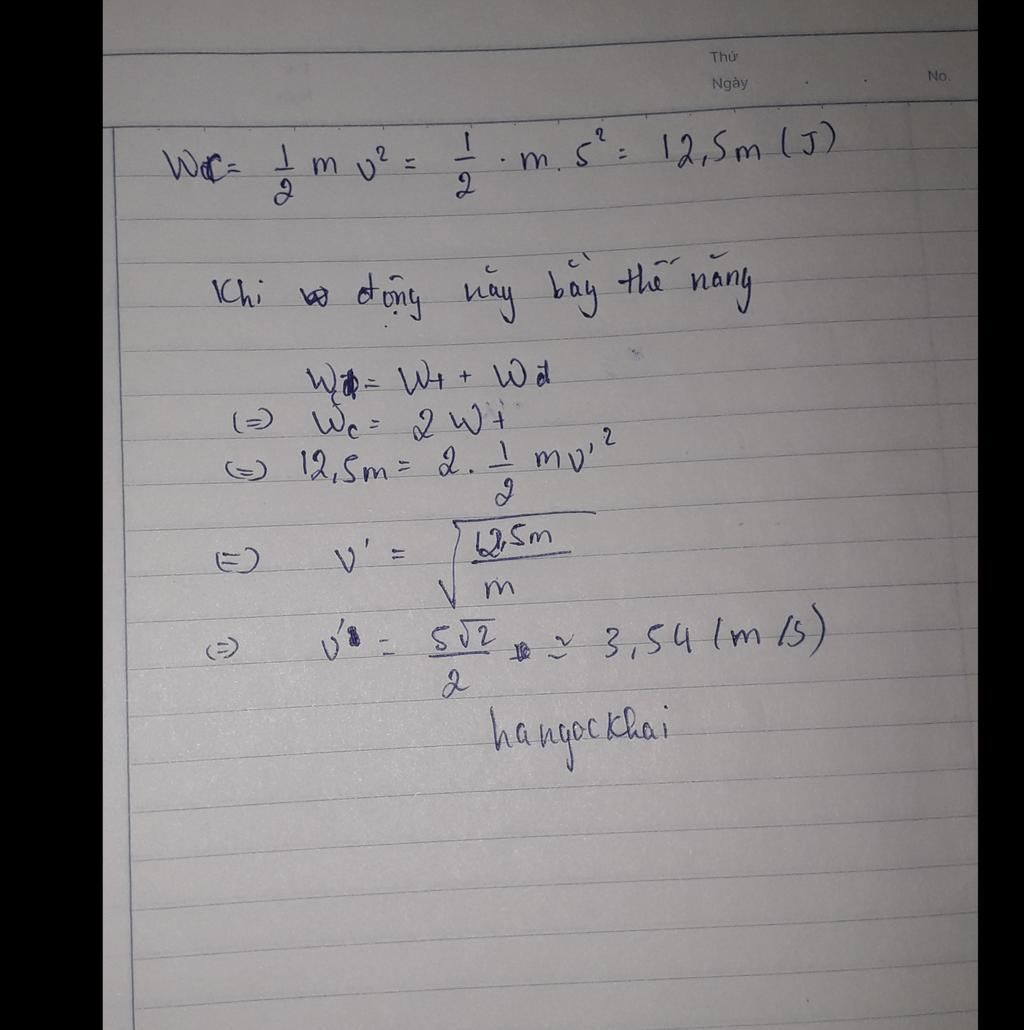 Thứ
Ngày . . No.
Wc = 1/2 m v² = 1/2 . m. 5² = 12,5m (J)
Khi động năng bằng thế năng
Wc = Wt + Wđ
(=) Wc = 2Wt
(=) 12,5m = 2. 1/2 mv'²
(=) v' = √(12,5m/m)
(=) v' = 5√2/2 ≃ 3,54 (m/s)
hangockhai